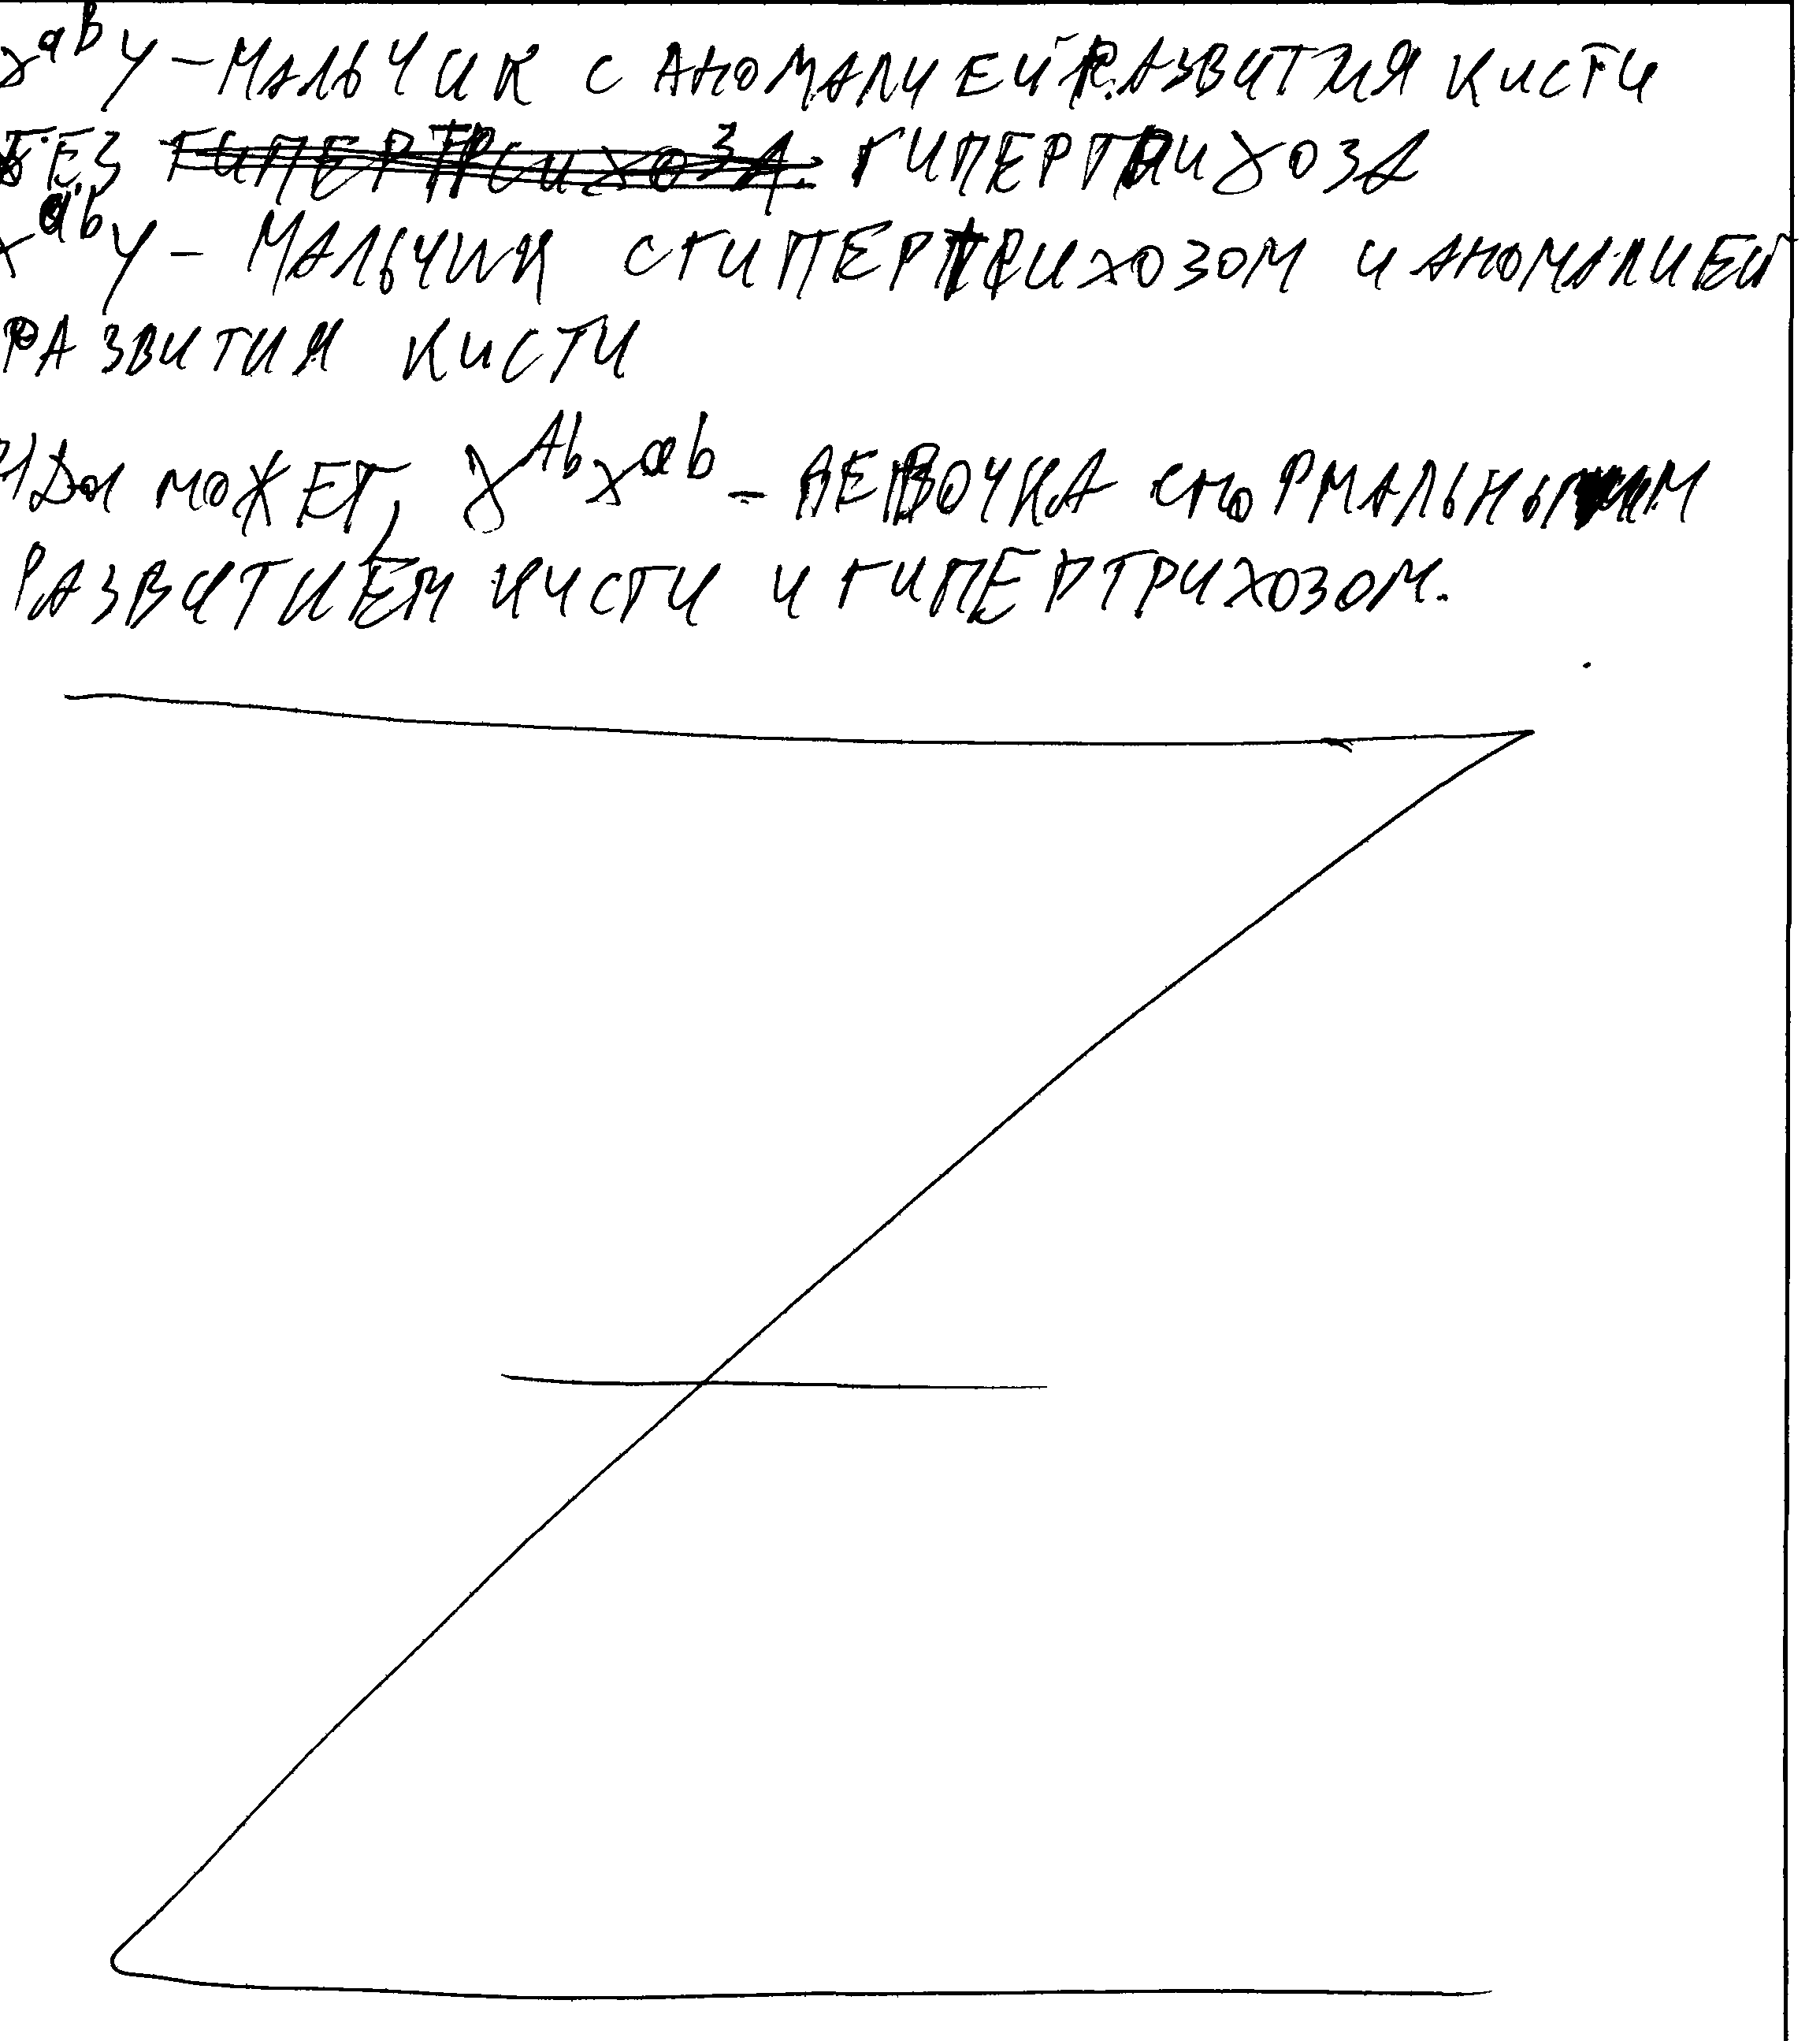 x^aB y – МАЛЬЧИК С АНОМАЛИЕЙ РАЗВИТИЯ КИСТИ
БЕЗ ГИПЕРТРИХОЗА
x^ab y – МАЛЬЧИК С ГИПЕРТРИХОЗОМ И АНОМАЛИЕЙ
РАЗВИТИЯ КИСТИ
Да МОЖЕТ, x^Ab x^ab – ДЕВОЧКА С НОРМАЛЬНЫМ
РАЗВИТИЕМ КИСТИ И ГИПЕРТРИХОЗОМ.